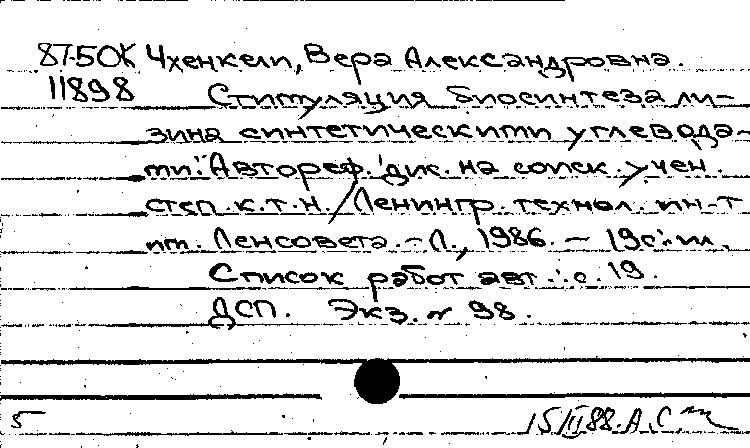 87-5ОК Чхенкели, Вера Александровна.
11898 Стимуляция биосинтеза ли-
зина синтетическими углевода-
ми: Автореф. дис. на соиск. учен.
степ. к.т.н. / Ленингр. технол. ин-т
им. Ленсовета. - Л., 1986. - 19с.: ил.
Список работ авт.: с. 19.
ДСП. Экз. № 98.
5 15/II 88. А.С.